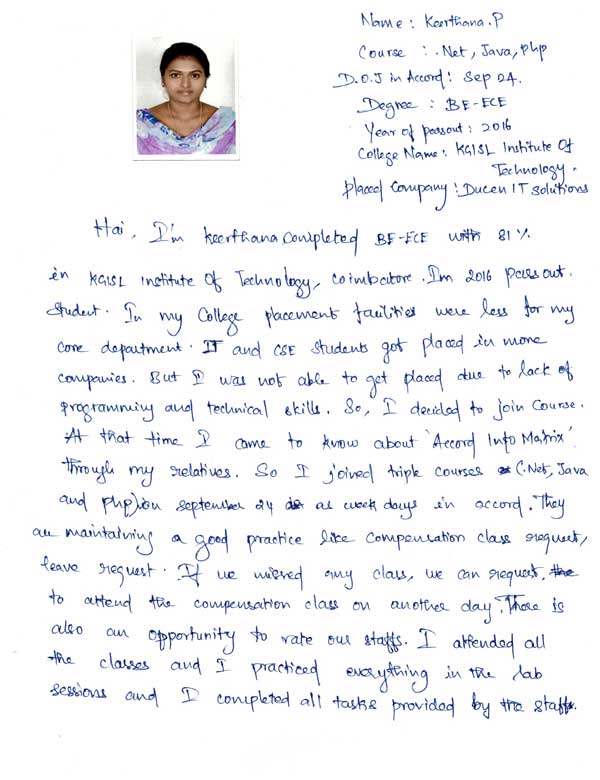 Name : Keerthana.P
Course : .Net, Java, php
D.O.J in Accord : Sep 24.
Degree : BE-ECE
Year of passout : 2016
College Name : KGISL Institute Of
Technology.
Placed Company : Ducen IT Solutions
Hai, I'm Keerthana completed BE-ECE with 81%
in KGISL Institute Of Technology, Coimbatore. I'm 2016 pass out
student. In my College placement facilities were less for my
core department. IT and CSE students got placed in more
companies. But I was not able to get placed due to lack of
programming and technical skills. So, I decided to join Course.
At that time I came to know about 'Accord Info Matrix'
through my relatives. So I joined triple courses (.Net, Java
and php) on september 24 as week days in accord. They
are maintaining a good practice like compensation class request,
leave request. If we missed any class, we can request,
to attend the compensation class on another day. There is
also an opportunity to rate our staffs. I attended all
the classes and I practiced everything in the lab
sessions and I completed all tasks provided by the staffs.